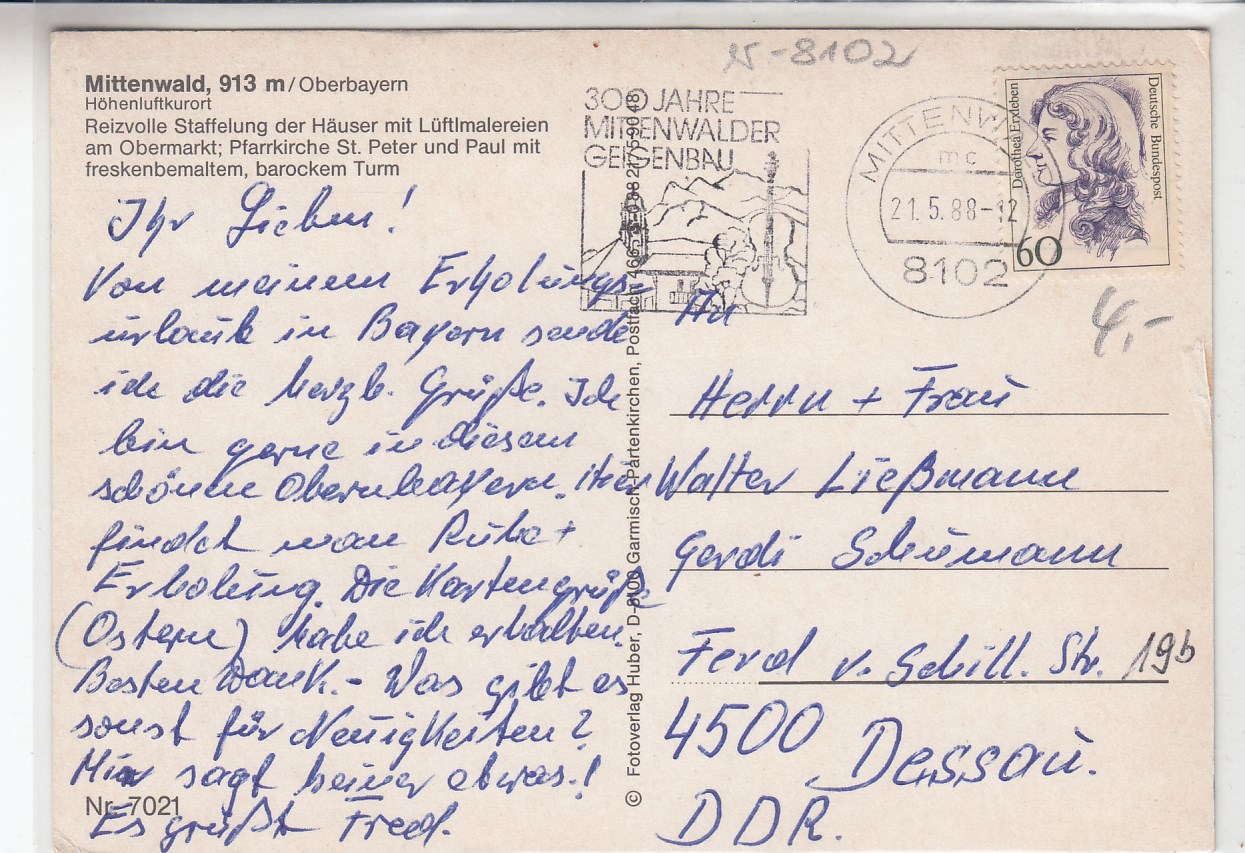 15-8102
Mittenwald, 913 m/Oberbayern
Höhenluftkurort
Reizvolle Staffelung der Häuser mit Lüftlmalereien
am Obermarkt; Pfarrkirche St. Peter und Paul mit
freskenbemaltem, barockem Turm
300 JAHRE
MITTENWALDER
GEIGENBAU
MITTENW
mc
21.5.88-12
8102
Dorothea Erxleben
Deutsche Bundespost
60
4,-
Ihr Lieben!
Von meinem Erholungs=
urlaub in Bayern sende
ich die herzl. Grüße. Ich
bin gerne in diesem
schönen Oberbayern. Hier
findet man Ruhe +
Erholung. Die Kartengrüße
(Ostern) habe ich erhalten.
Besten Dank. - Was gibt es
sonst für Neuigkeiten?
Mir sagt keiner etwas.!
Es grüßt Fred.
Nr. 7021
© Fotoverlag Huber, D-8100 Garmisch-Partenkirchen, Postfach
An
Herrn + Frau
Walter Ließmann
Gerdi Schumann
Ferd v. Schill. Str. 19b
4500 Dessau.
DDR.